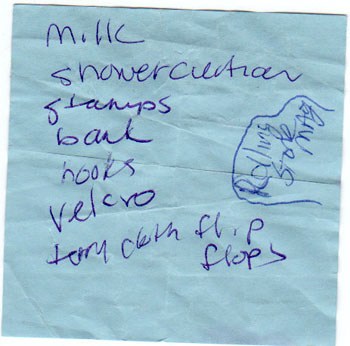 milk
shower curtian
stamps
bank
hooks
velcro
terry cloth flip
flops
Rolling
Stone